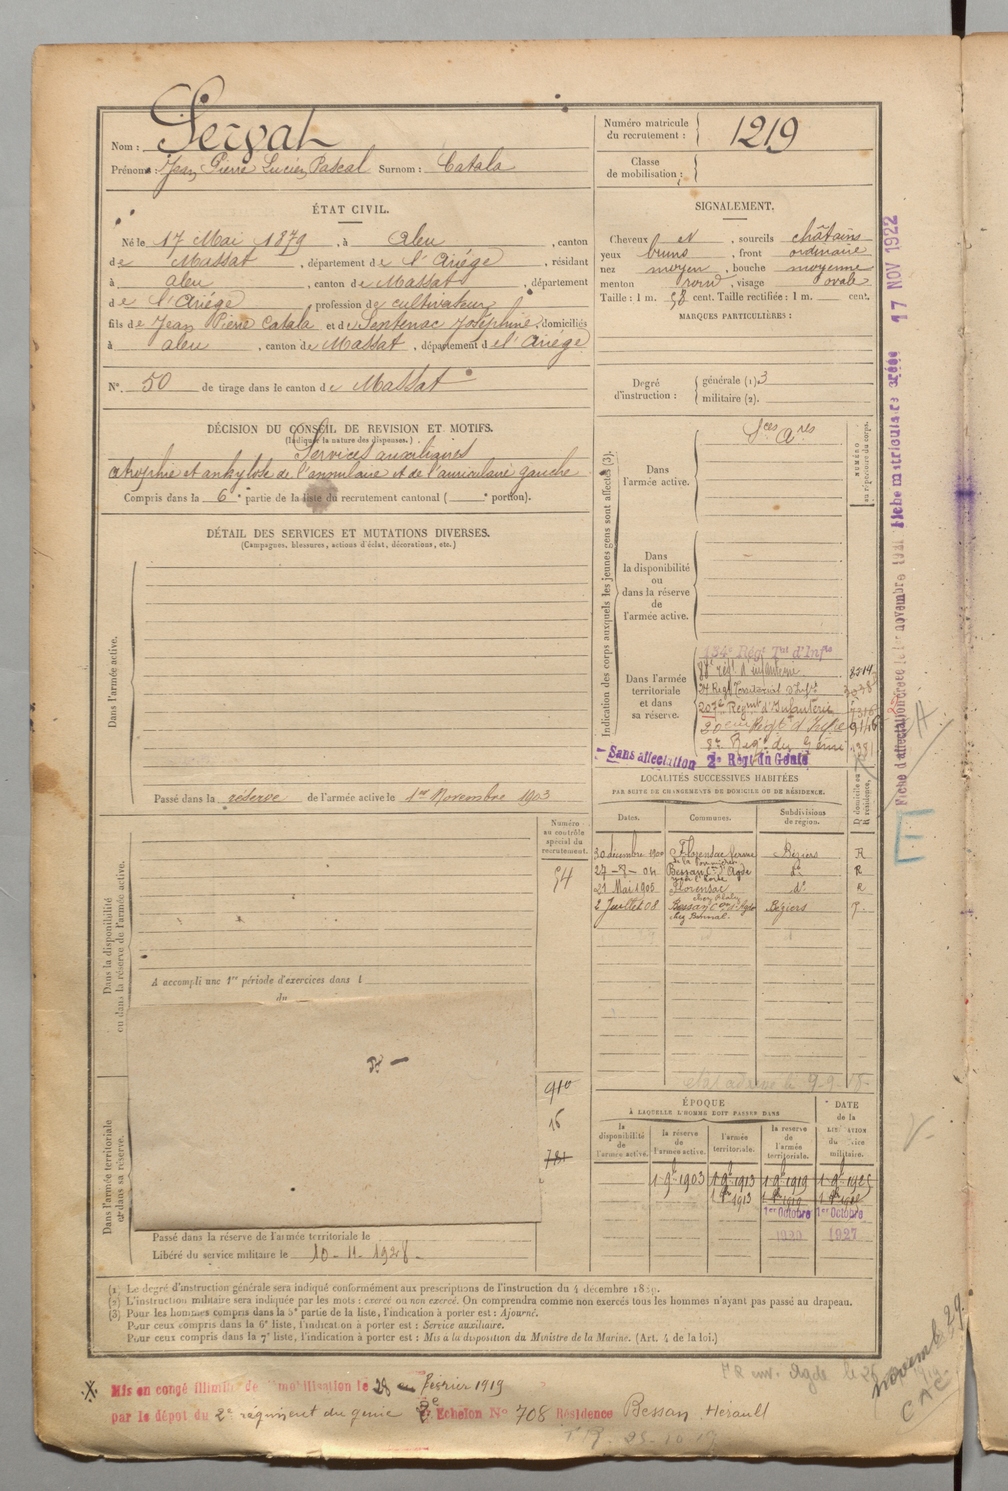 Nom : Servat
Prénoms : Jean Pierre Lucien Pascal Surnom : Catala
Numéro matricule du recrutement : 1219
Classe de mobilisation :
ÉTAT CIVIL.
Né le 17 Mai 1879, à Aleu, canton
de Massat, département de l'Ariége, résidant
à Aleu, canton de Massat, département
de l'Ariége, profession de cultivateur
fils de Jean Pierre Catala et de Sentenac Joséphine, domiciliés
à aleu, canton de Massat, département de l'Ariége
N° 50 de tirage dans le canton de Massat
SIGNALEMENT.
Cheveux et, sourcils châtains
yeux bruns, front ordinaire
nez moyen, bouche moyenne
menton rond, visage ovale
Taille : 1 m. 58 cent. Taille rectifiée : 1 m. cent.
MARQUES PARTICULIÈRES :
Degré d'instruction : générale (1) 3
militaire (2).
DÉCISION DU CONSEIL DE REVISION ET MOTIFS.
(Indiquer la nature des dispenses.)
Services auxiliaires
atrophie et ankylose de l'annulaire et de l'auriculaire gauche
Compris dans la 6e partie de la liste du recrutement cantonal ( e portion).
DÉTAIL DES SERVICES ET MUTATIONS DIVERSES.
(Campagnes, blessures, actions d'éclat, décorations, etc.)
Dans l'armée active.
Passé dans la réserve de l'armée active le 1er Novembre 1903
Indication des corps auxquels les jeunes gens sont affectés (3).
NUMÉRO au répertoire du corps.
Dans l'armée active.
Sces Ares
Dans la disponibilité ou dans la réserve de l'armée active.
Dans l'armée territoriale et dans sa réserve.
134e Régt Tal d'Infie
88e régt d'infanterie 8214
207e Régiment d'Infanterie
20eme Régt d'Infie
8e Régt du Génie
Sans affectation 2e Régt du Génie
LOCALITÉS SUCCESSIVES HABITÉES
PAR SUITE DE CHANGEMENTS DE DOMICILE OU DE RÉSIDENCE.
Dates. Communes. Subdivisions de région. D. domicile ou R. résidence.
30 décembre 1900 Florensac ferme Béziers R
27-8-04 Bessan Con d'Agde do R
21 Mai 1905 Florensac do R
2 Juillet 08 Bessan Con d'Agde Béziers
Dans la disponibilité ou dans la réserve de l'armée active.
Numéro au contrôle spécial du recrutement.
54
A accompli une 1re période d'exercices dans l
du
910
16
781
ÉPOQUE
À LAQUELLE L'HOMME DOIT PASSER DANS
la disponibilité de l'armée active.
la réserve de l'armée active.
l'armée territoriale.
la réserve de l'armée territoriale.
DATE de la LIBÉRATION du service militaire.
1 9bre 1903 1 9bre 1913 1 9bre 1919 1 9bre 1925
1er Octobre 1er Octobre
1920 1927
Dans l'armée territoriale et dans sa réserve.
Passé dans la réserve de l'armée territoriale le
Libéré du service militaire le 10-11-1928
(1) Le degré d'instruction générale sera indiqué conformément aux prescriptions de l'instruction du 4 décembre 1889.
(2) L'instruction militaire sera indiquée par les mots : exercé ou non exercé. On comprendra comme non exercés tous les hommes n'ayant pas passé au drapeau.
(3) Pour les hommes compris dans la 5e partie de la liste, l'indication à porter est : Ajourné.
Pour ceux compris dans la 6e liste, l'indication à porter est : Service auxiliaire.
Pour ceux compris dans la 7e liste, l'indication à porter est : Mis à la disposition du Ministre de la Marine. (Art. 4 de la loi.)
Mis en congé illimité de démobilisation le 28 février 1919
par le dépôt du 2e régiment du génie Echelon No 708 Résidence Bessan, Hérault
Fiche matriculaire créée 17 NOV 1922
Fiche d'affectation créée le novembre 1921
novemb 29.